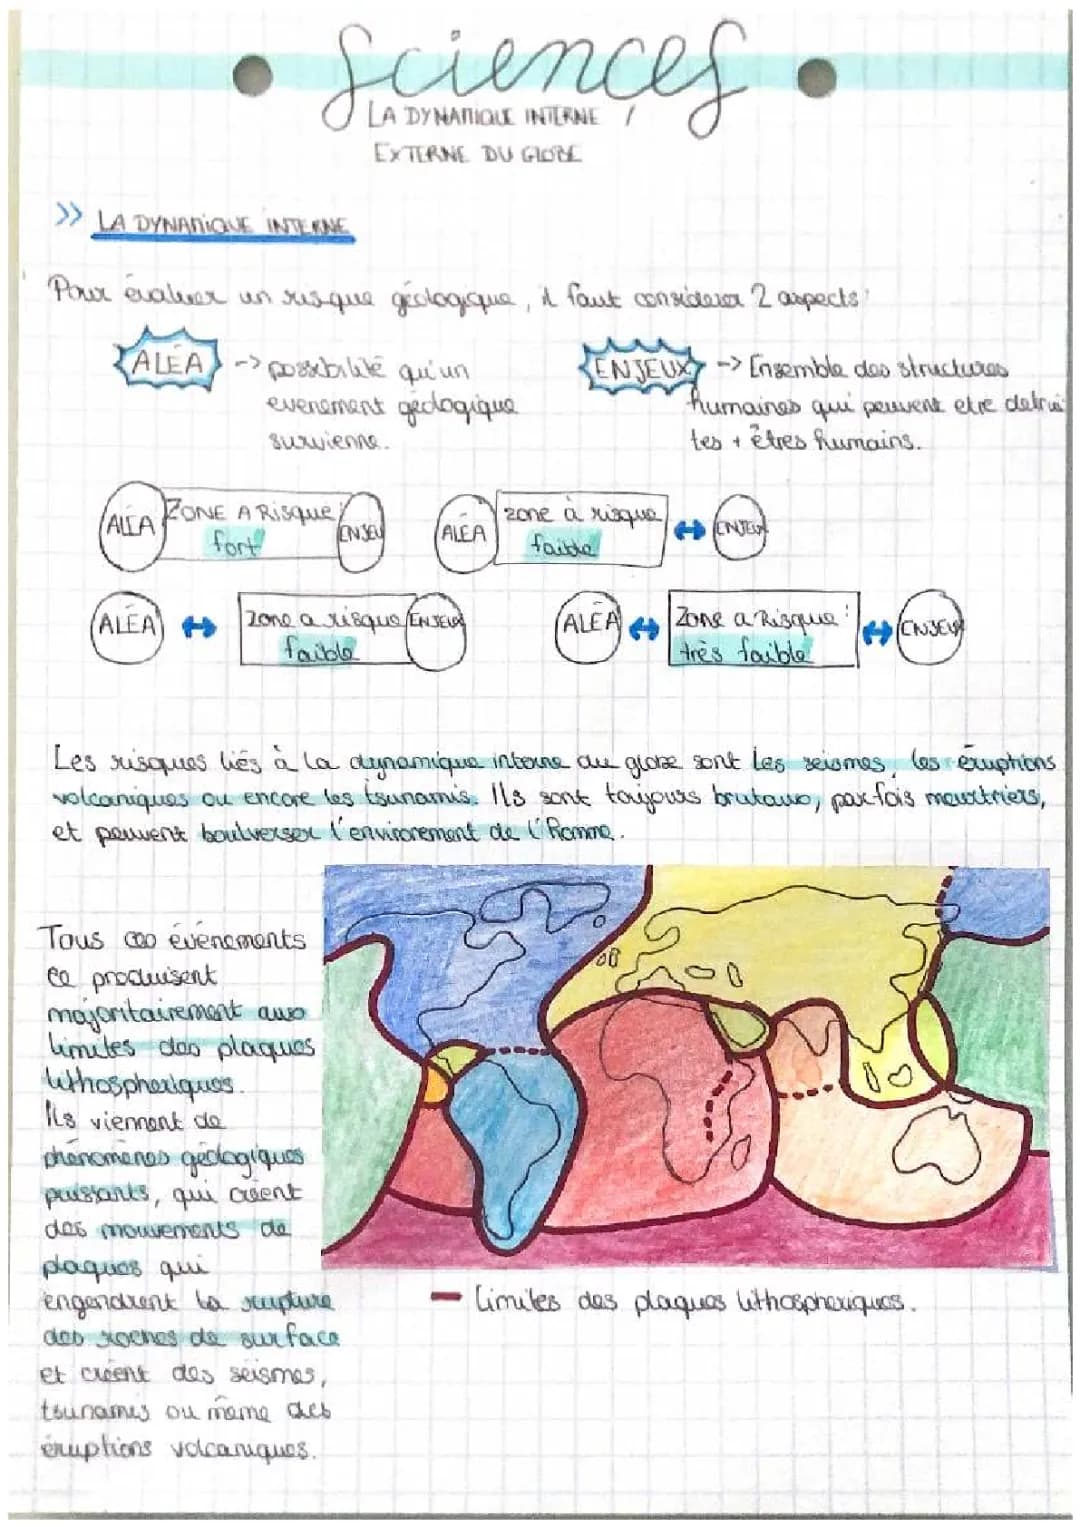 Sciences
LA DYNAMIQUE INTERNE /
EXTERNE DU GLOBE
>> LA DYNAMIQUE INTERNE
Pour évaluer un risque géologique, il faut considerer 2 aspects:
ALÉA -> possibilité qu'un
evenement géologique
survienne.
ENJEUX -> Ensemble des structures
humaines qui peuvent etre detrui
tes + êtres humains.
ALÉA ZONE A Risque fort ENJEU
ALÉA zone à risque faible ENJEUX
ALÉA zone a risque faible ENJEUX
ALÉA Zone a Risque : très faible ENJEUX
Les risques liés à la dynamique interne du globe sont les seismes, les éruptions
volcaniques ou encore les tsunamis. Ils sont toujours brutaux, parfois meurtriers,
et peuvent boulverser l'environement de l'Homme.
Tous ces événements
ce produisent
majoritairement aux
limites des plaques
lithospheriques.
Ils viennent de
phénomènes géologiques
puissants, qui créent
des mouvements de
plaques qui
engendrent la rupture
des roches de surface
et créent des séismes,
tsunamis ou même des
éruptions volcaniques.
limites des plaques lithospheriques.